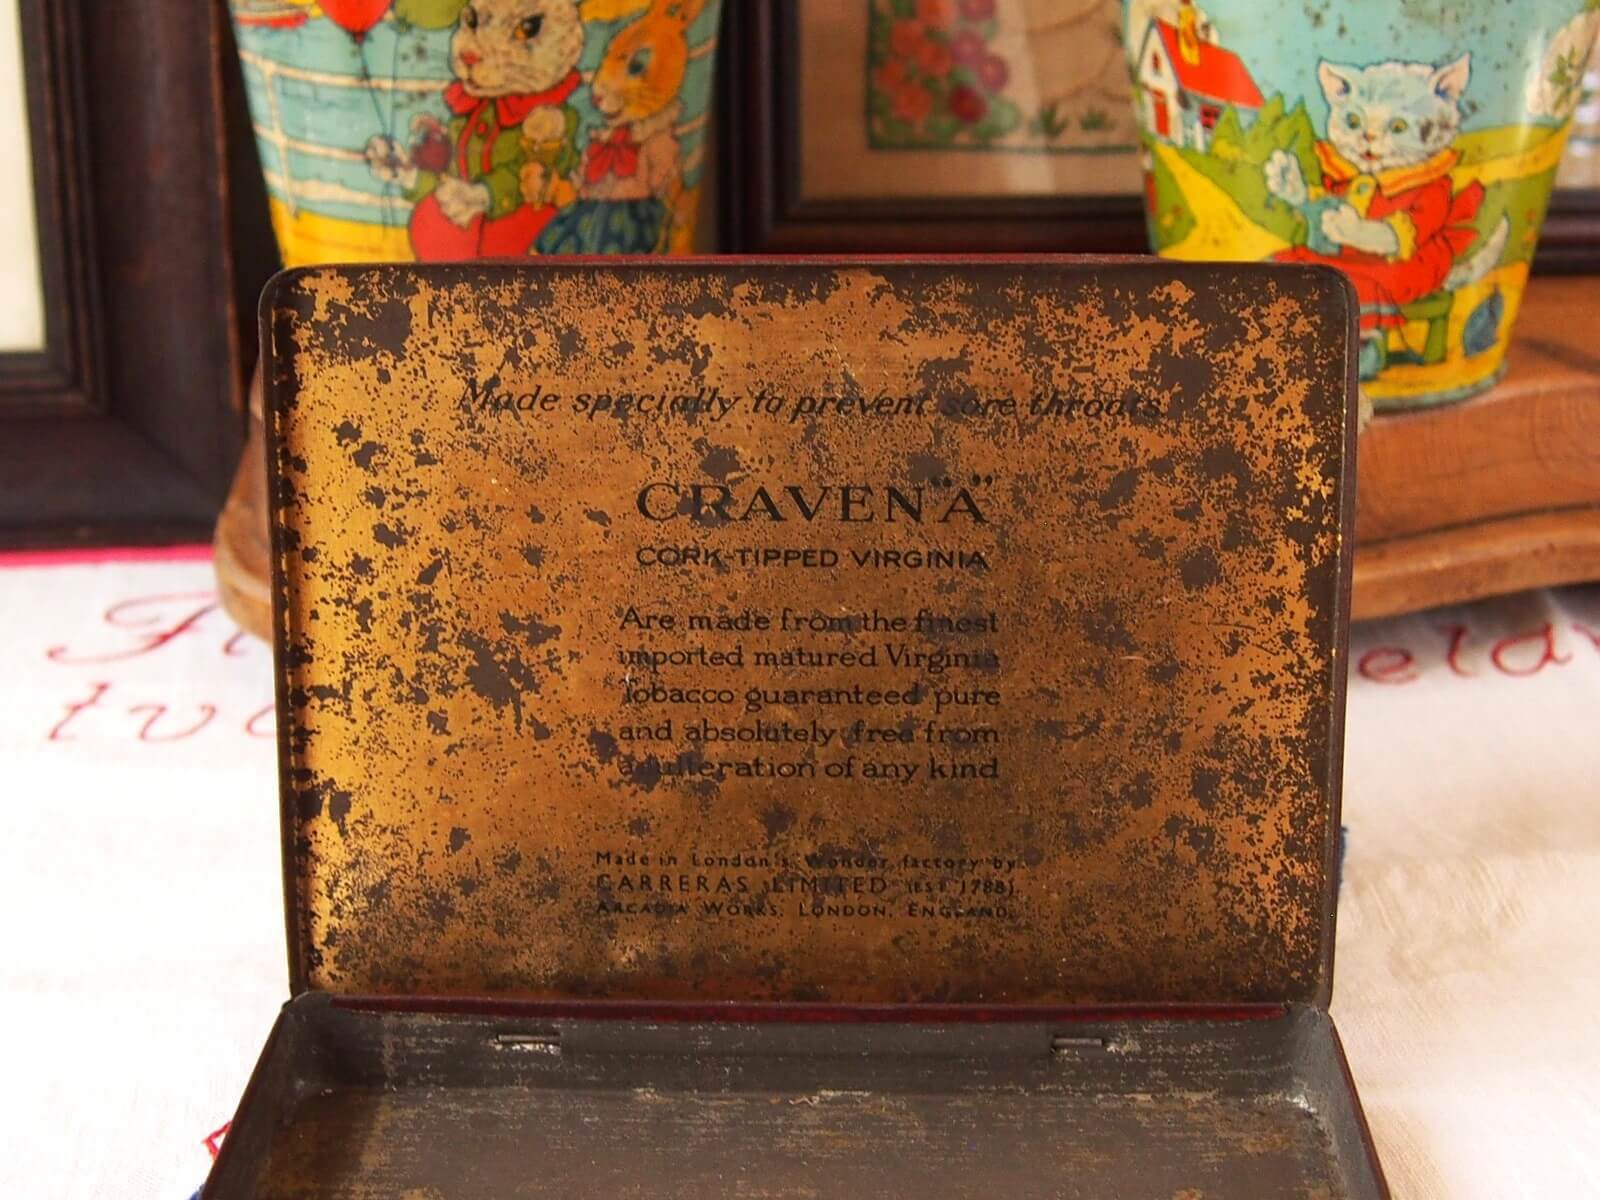 Made specially to prevent sore throats.
CRAVEN "A"
CORK-TIPPED VIRGINIA
Are made from the finest
imported matured Virginia
Tobacco guaranteed pure
and absolutely free from
adulteration of any kind
Made in London's Wonder factory by
CARRERAS LIMITED (EST 1788).
ARCADIA WORKS, LONDON, ENGLAND.